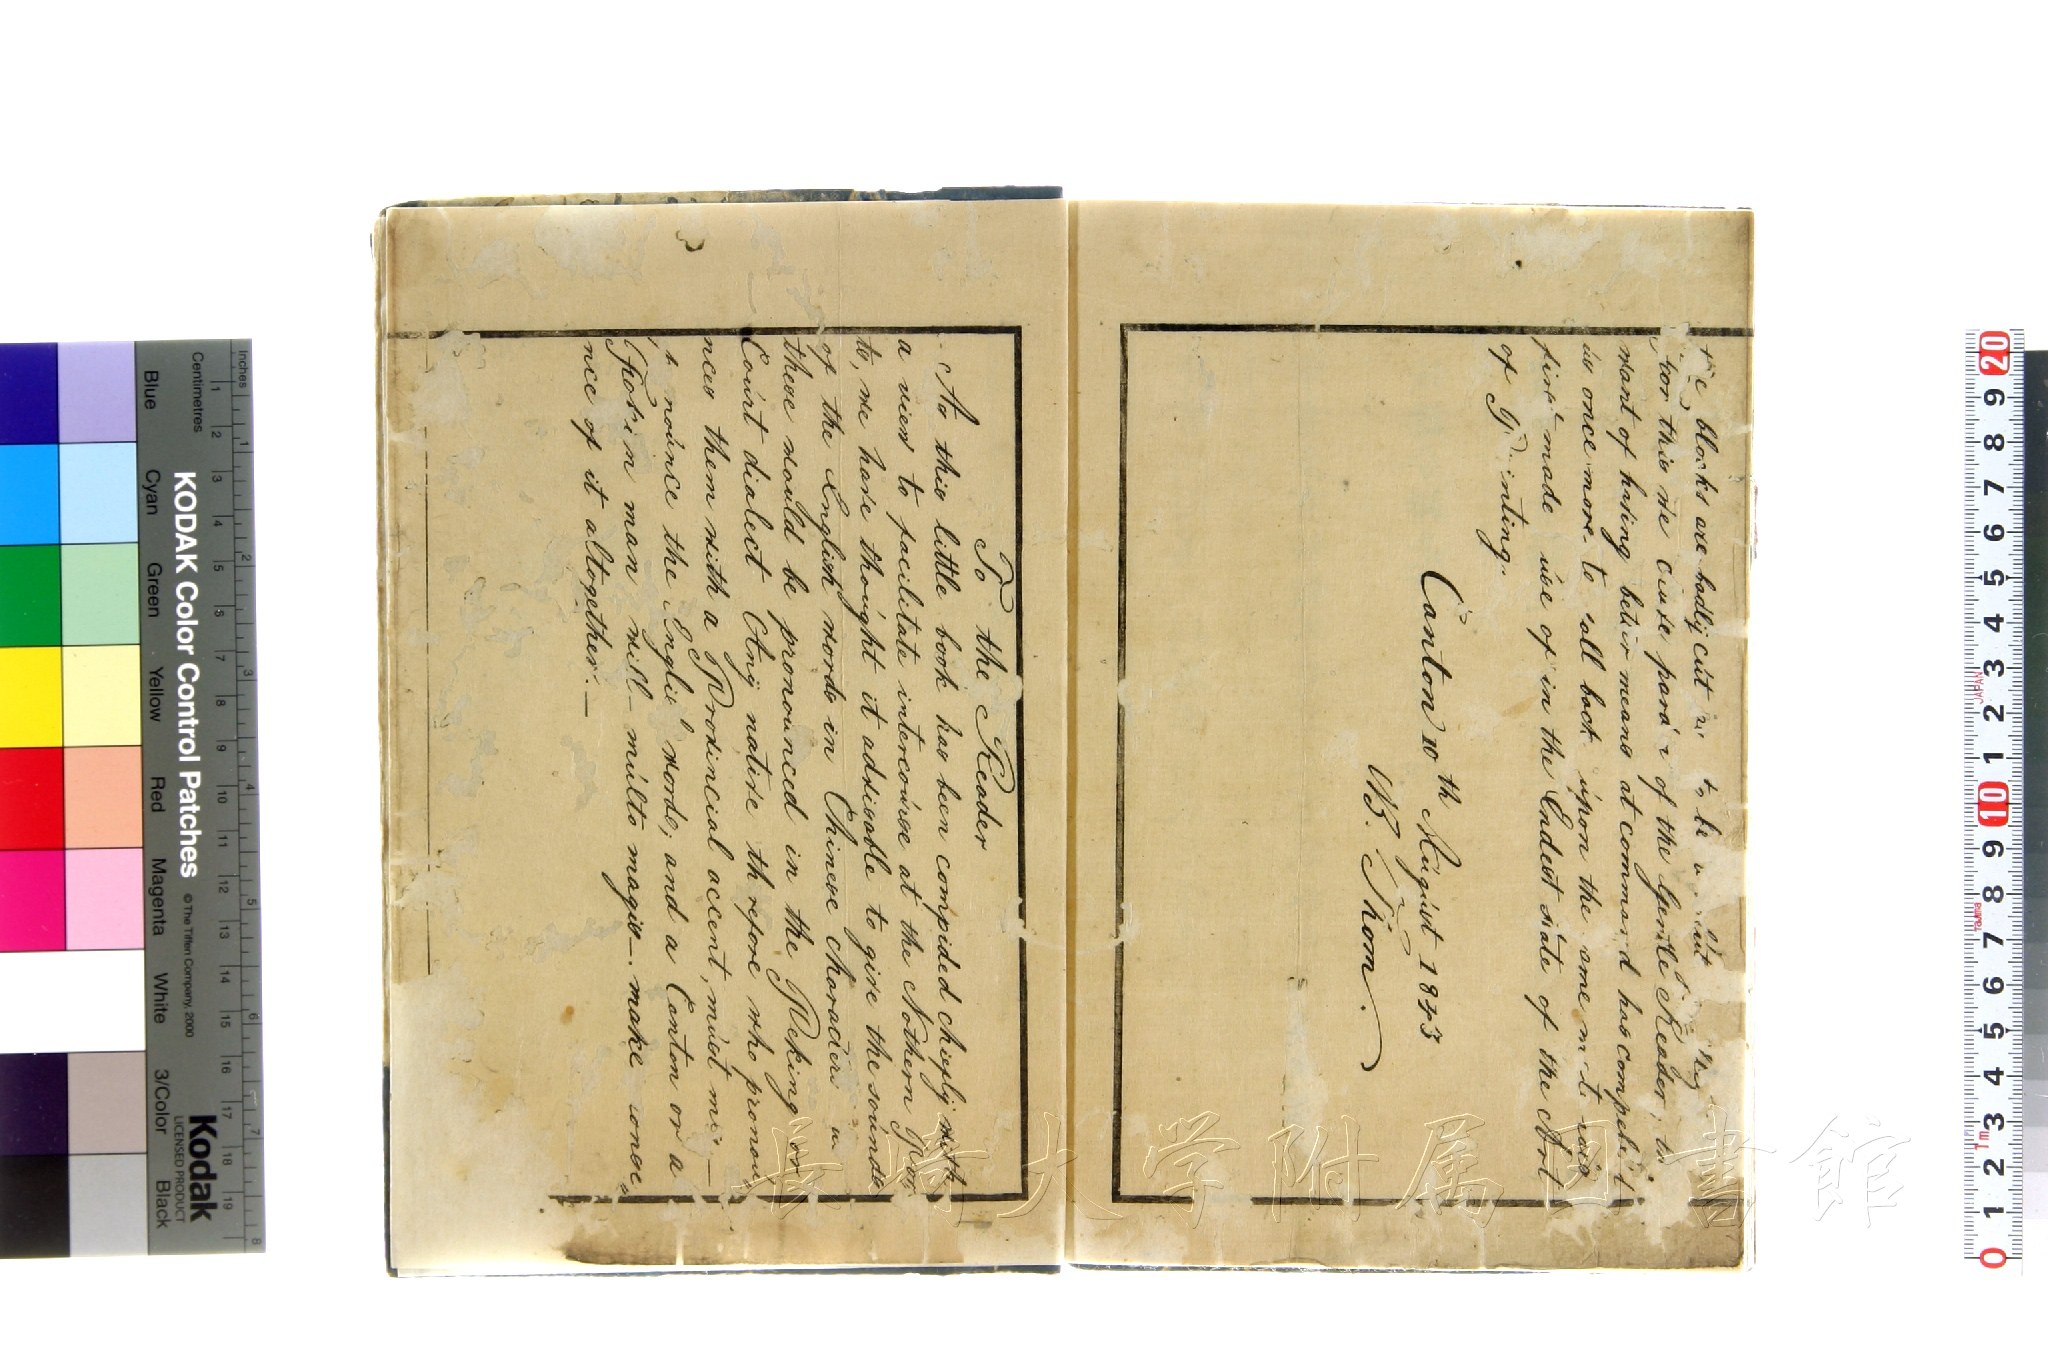 blocks are badly cut to be
For this we of the Gentle Reader; the
want of having better means at command has compelled
us once more to call back upon the
first made use of in the Rudest state of the Art
of Printing.
Canton 10th August 1843
Thom.
To the Reader
As this little book has been compided chiefly with
a view to facilitate intercourse at the Nothern
to, we have thought it advisable to give the sounds
of the English words in Chinese characters as
these would be pronounced in the Peking or
Court dialect Any native therefore who pronou
nces them with a Provincial accent, must
the English words, and a Canton or a
man will – multo magis –. make
nce of it altogether. –
KODAK Color Control Patches
© The Tiffen Company, 2000
Kodak
LICENSED PRODUCT
Inches
Centimetres
Blue
Cyan
Green
Yellow
Red
Magenta
White
3/Color
Black
1 2 3 4 5 6 7 8
1 2 3 4 5 6 7 8 9 10 11 12 13 14 15 16 17 18 19
20 9 8 7 6 5 4 3 2 1 10 9 8 7 6 5 4 3 2 1 0
JAPAN
長崎大学附属図書館